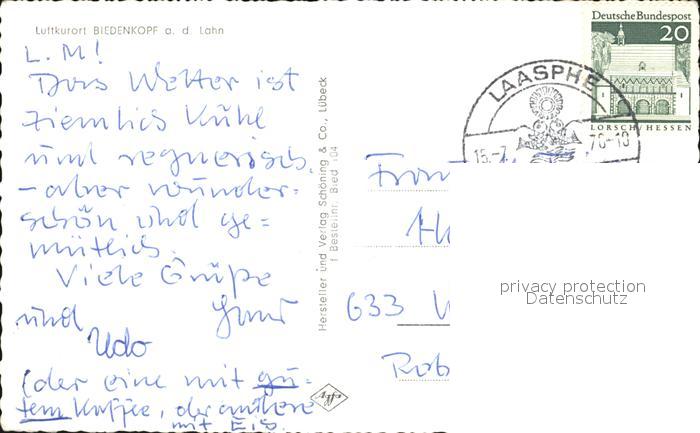 Luftkurort BIEDENKOPF a. d. Lahn
L. M!
Das Wetter ist
ziemlich kühl
und regnerisch.
- aber wunder=
schön und ge=
mütlich.
Viele Grüße
und
Udo
(der eine mit gu=
tem Kaffee, der andere
mit Eis.
Hersteller und Verlag Schöning & Co., Lübeck
Bestellnr. Bied 104
agfa
Deutsche Bundespost
20
LORSCH/HESSEN
LAASPHE
15.-7.
Frau
633
Rob
privacy protection
Datenschutz